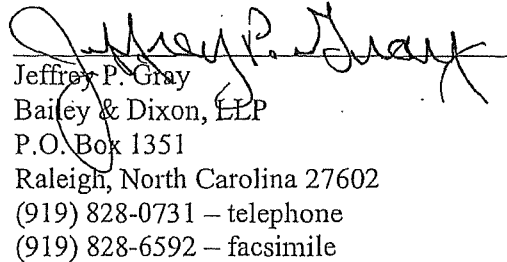 Jeffrey P. Gray
Jeffrey P. Gray
Bailey & Dixon, LLP
P.O. Box 1351
Raleigh, North Carolina 27602
(919) 828-0731 – telephone
(919) 828-6592 – facsimile